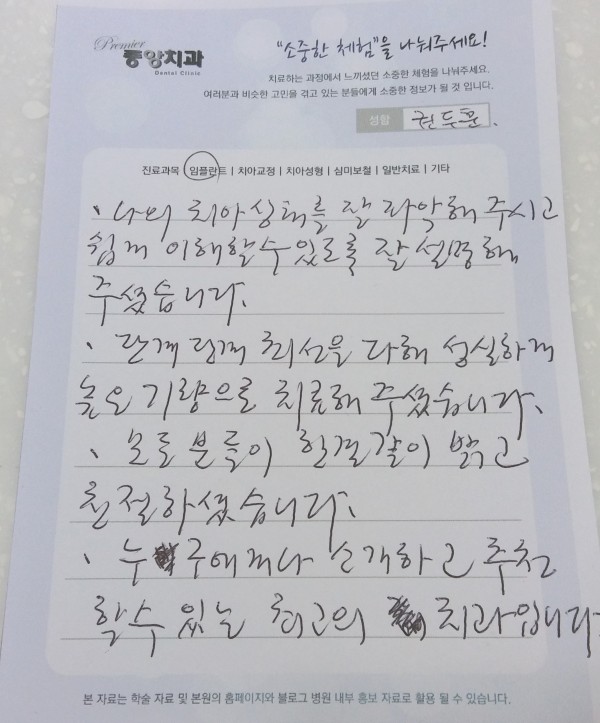 Premier
중앙치과
Dental Clinic
"소중한 체험"을 나눠주세요!
치료하는 과정에서 느끼셨던 소중한 체험을 나눠주세요.
여러분과 비슷한 고민을 겪고 있는 분들에게 소중한 정보가 될 것 입니다.
성함 권두훈.
진료과목 임플란트 | 치아교정 | 치아성형 | 심미보철 | 일반치료 | 기타
、나의 치아상태를 잘 파악해 주시고
쉽게 이해할수있도록 잘 설명해
주셨습니다.
、단계 단계 최선을 다해 성실하게
높은 기량으로 치료해 주셨습니다.
、모든 분들이 한결같이 밝고
친절하셨습니다.
、누구에게나 소개하고 추천
할수 있는 최고의 치과입니다.
본 자료는 학술 자료 및 본원의 홈페이지와 블로그 병원 내부 홍보 자료로 활용 될 수 있습니다.